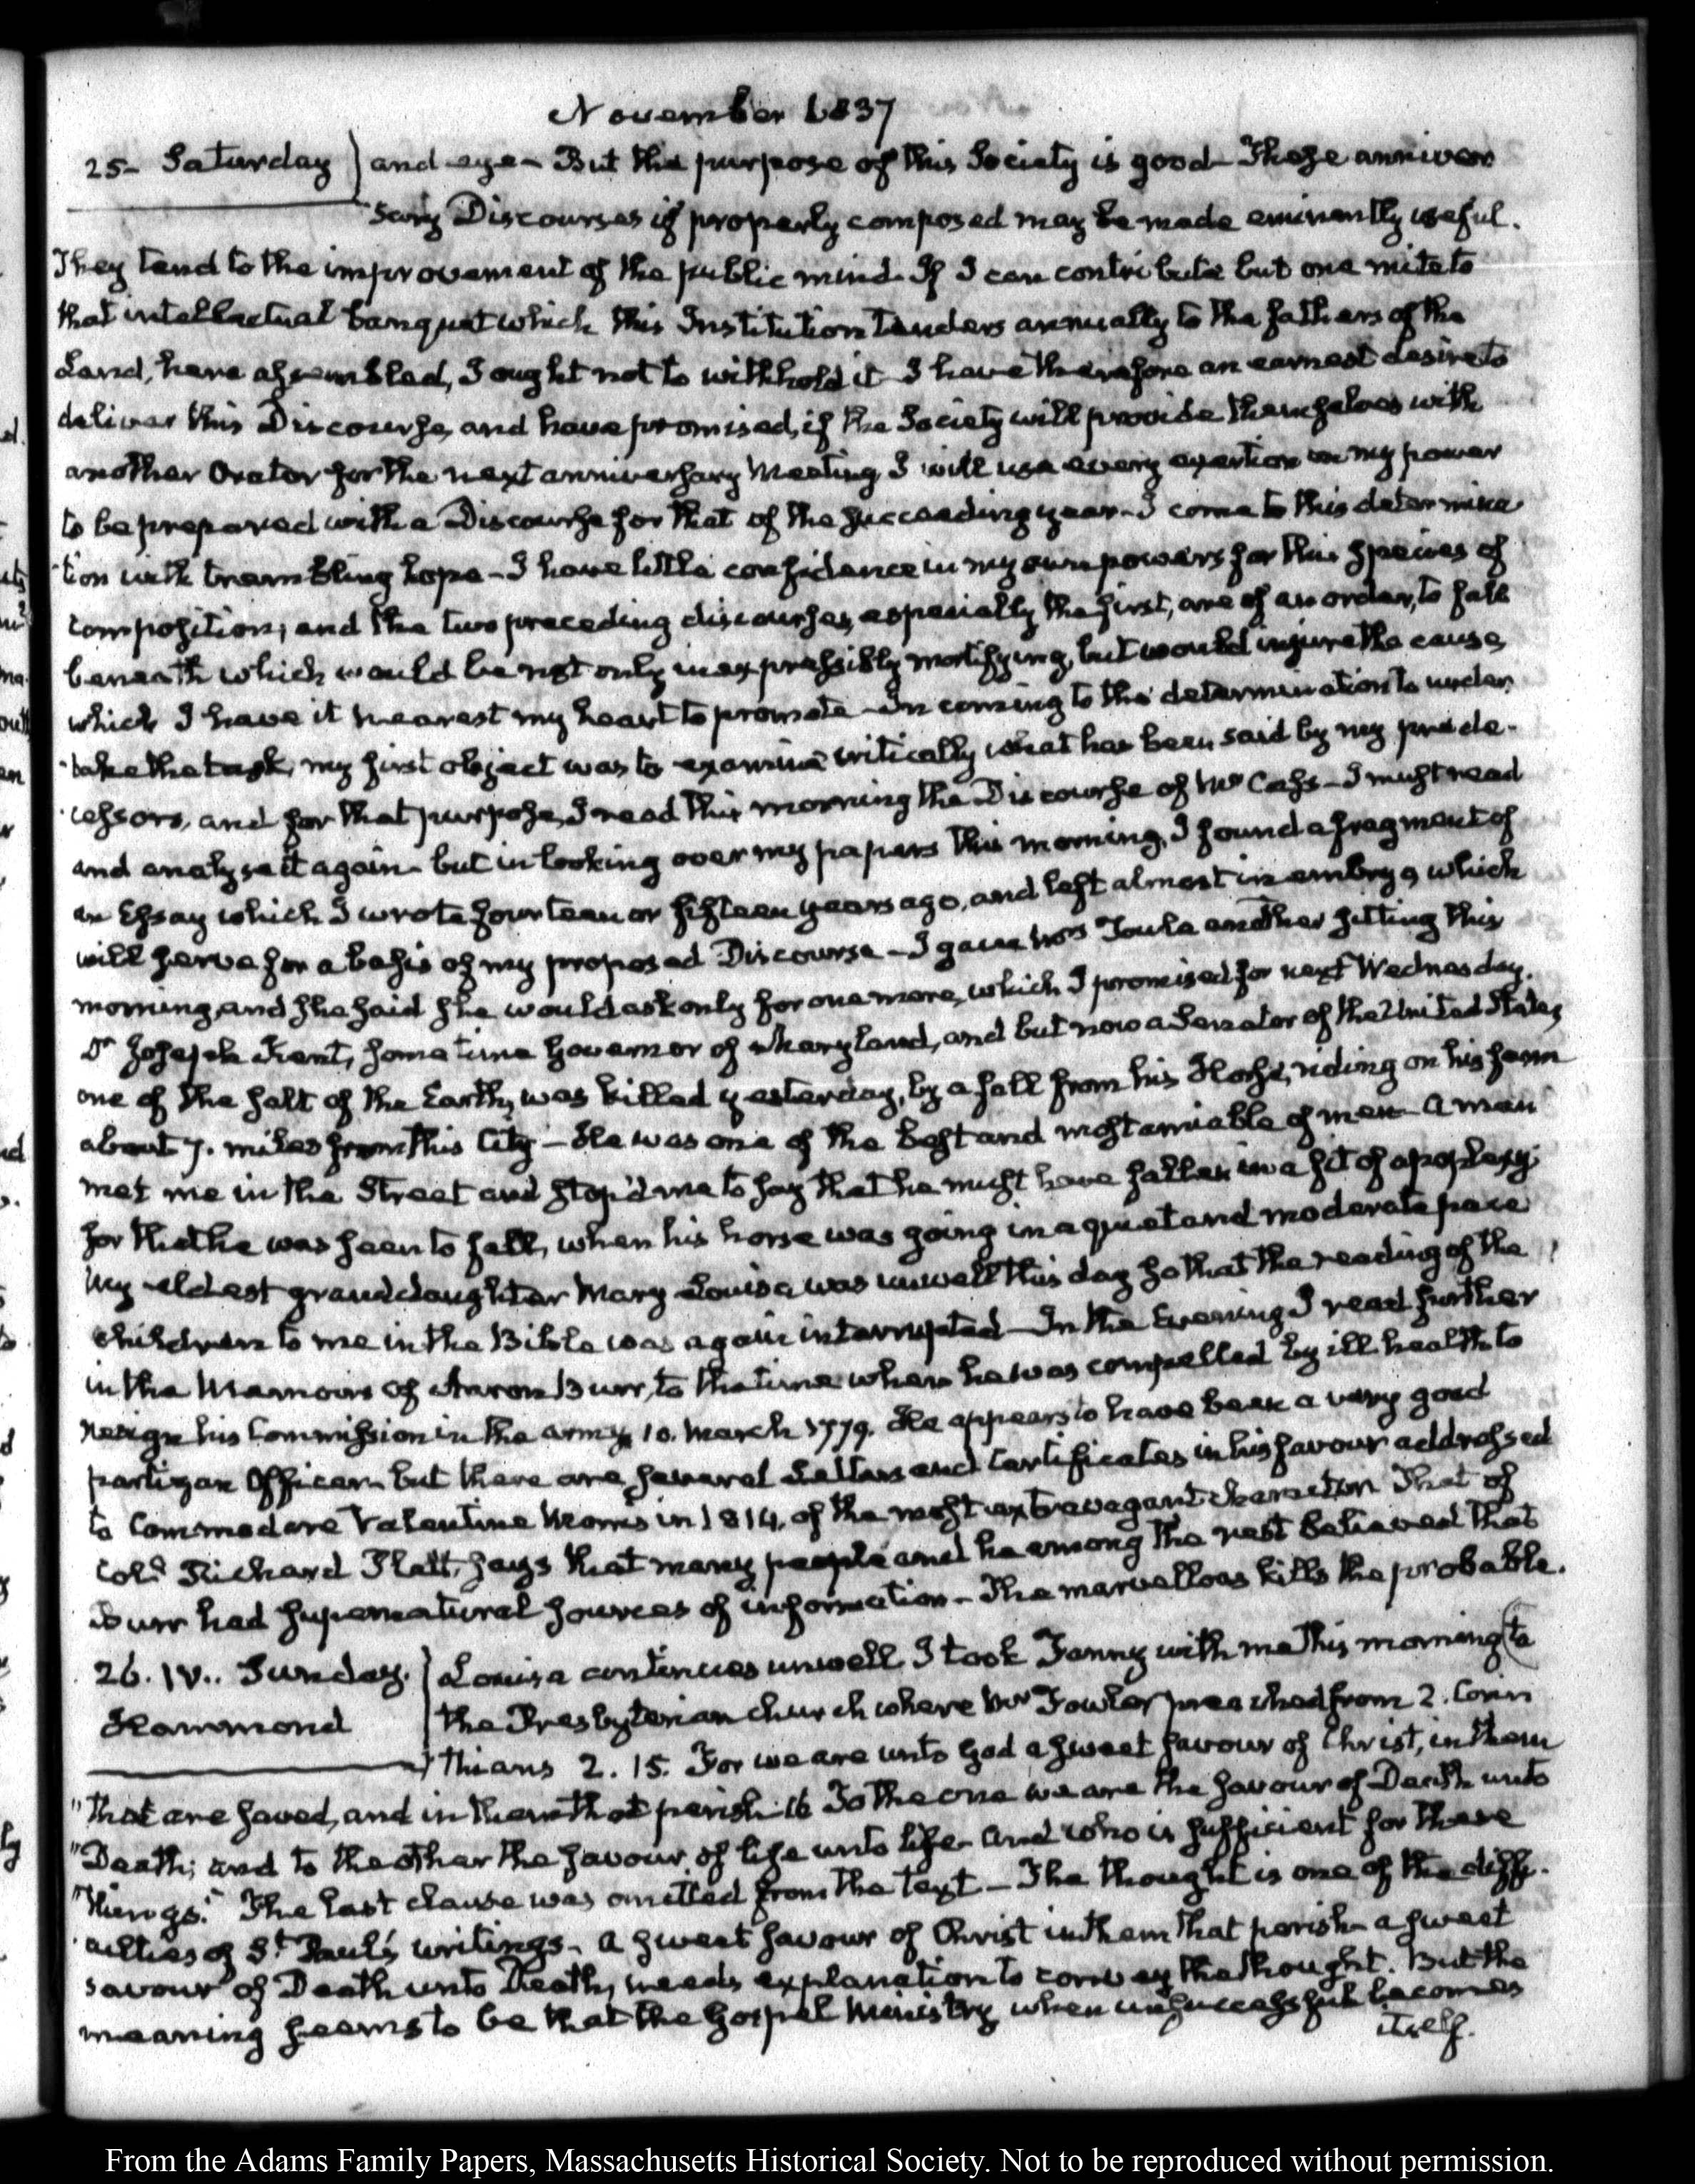 November 1837
25- Saturday) and eye- But the purpose of this Society is good- These anniver
sary Discourses if properly composed may be made eminently useful.
They tend to the improvement of the public mind- If I can contribute but one mite to
that intellectual banquet which this Institution tenders annually to the fathers of the
Land, here assembled, I ought not to withhold it- I have therefore an earnest desire to
deliver this Discourse, and have promised, if the Society will provide themselves with
another Orator for the next anniversary Meeting, I will use every exertion in my power
to be prepared with a Discourse for that of the succeeding year- I come to this determina
tion with trembling hope- I have little confidence in my own powers for this species of
composition; and the two preceding discourses, especially the first, are of an order, to fall
beneath which would be not only inexpressibly mortifying, but would injure the cause,
which I have it nearest my heart to promote- In coming to the determination to under
take the task, my first object was to examine critically what has been said by my prede-
cessors, and for that purpose, I read this morning the Discourse of Mr Cass- I must read
and analyse it again- but in looking over my papers this morning, I found a fragment of
an Essay which I wrote fourteen or fifteen years ago, and left almost in embryo, which
will serve for a basis of my proposed Discourse- I gave Mrs Towle another sitting this
morning, and she said she would ask only for one more, which I promised for next Wednesday.
Dr Joseph Kent, sometime Governor of Maryland, and but now a Senator of the United States,
one of the salt of the Earth, was killed yesterday, by a fall from his Horse, riding on his farm
about 7. miles from this City- He was one of the best and most amiable of men- A man
met me in the Street and stop'd me to say that he must have fallen in a fit of apoplexy;
for that he was seen to fall, when his horse was going in a quiet and moderate pace
My eldest granddaughter Mary Louisa was unwell this day so that the reading of the
children to me in the Bible was again interrupted- In the Evening I read further
in the Memoirs of Aaron Burr, to the time when he was compelled by ill health to
resign his Commission in the army, 10. March 1779. He appears to have been a very good
partizan Officer- but there are several Letters and Certificates in his favour addressed
to Commodore Valentine Morris in 1814, of the most extravagant character That of
Coll Richard Platt, says that many people and he among the rest believed that
Burr had supernatural sources of information- The marvellous kills the probable.
26. IV.. Sunday. Louisa continues unwell I took Fanny with me this morning to
Hammond the Presbyterian church where Mr Fowler preached from 2. Corin
thians 2. 15. For we are unto God a sweet savour of Christ, in them
"that are saved, and in them that perish. 16 To the one we are the savour of Death unto
"Death; and to the other the savour of life unto life- And who is sufficient for these
"things." The last clause was omitted from the text- The thought is one of the diffi-
culties of St. Paul's writings- a sweet savour of Christ in them that perish- a sweet
savour of Death unto Death, needs explanation to convey the thought. But the
meaning seems to be that the Gospel Ministry, when unsuccessful becomes
itself.
From the Adams Family Papers, Massachusetts Historical Society. Not to be reproduced without permission.